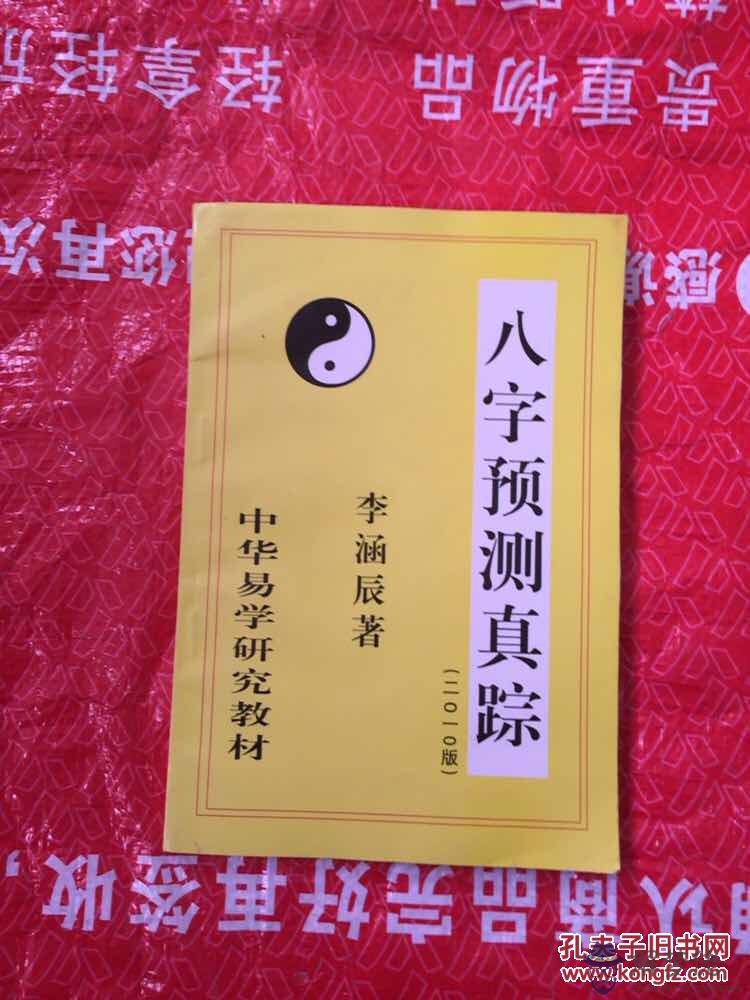 贵重物品 轻拿轻放
感谢
您再次
八字预测真踪
(二〇一〇版)
李涵辰著
中华易学研究教材
认商品完好再签收,
孔夫子旧书网
www.kongfz.com